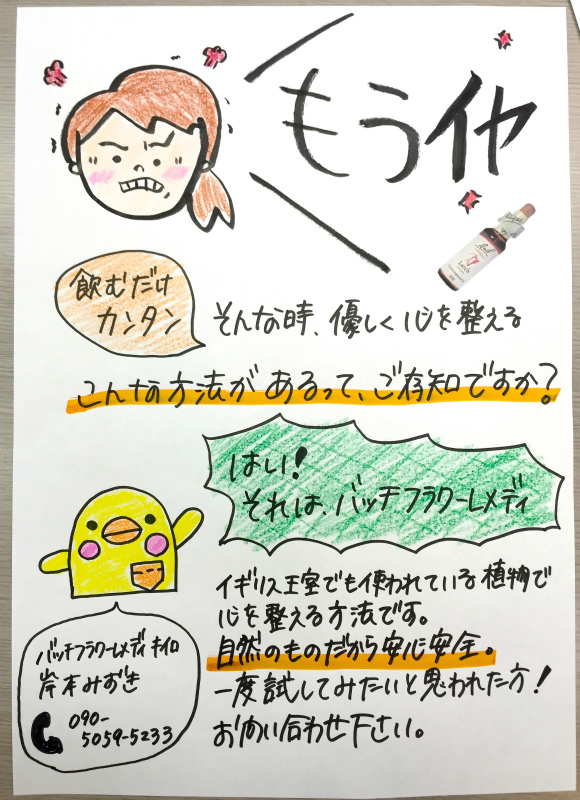 もうイヤ
Bach
Larch
飲むだけ
カンタン
そんな時、優しく心を整える
こんな方法があるって、ご存知ですか?
はい!
それは、バッチフラワーレメディ
イギリス王室でも使われている植物で
心を整える方法です。
自然のものだから安心安全。
一度試してみたいと思われた方!
お問い合わせ下さい。
バッチフラワーレメディ キイロ
岸本みずき
090-
5059-5233